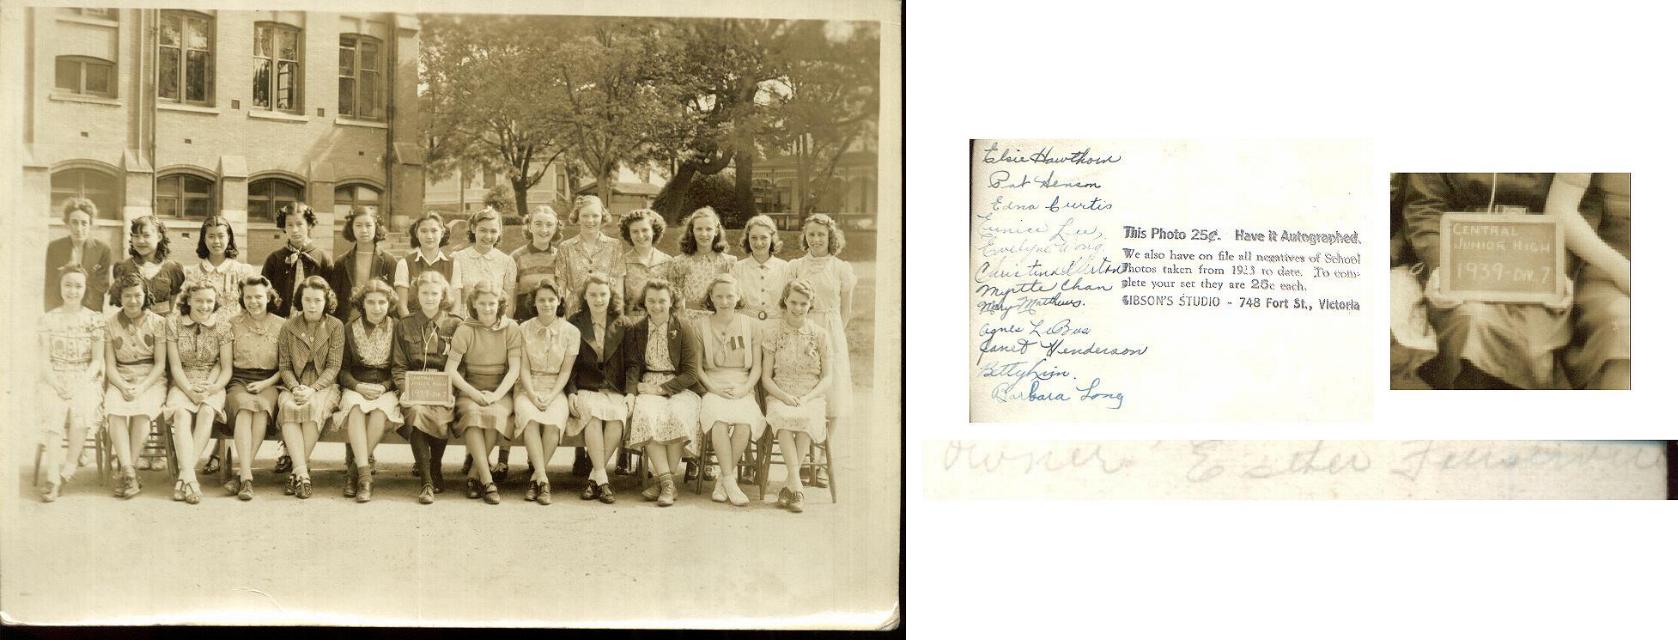 CENTRAL
JUNIOR HIGH
1939-DIV. 7
Elsie Hawthorn
Pat Henson
Edna Curtis
Eunice Lee,
Evelyne Wong.
Myrtle Chan
Mary Mathews.
Agnes LeBus
Janet Henderson
Betty Lim.
Barbara Long
This Photo 25¢. Have it Autographed.
We also have on file all negatives of School
Photos taken from 1923 to date. To com-
plete your set they are 25c each.
GIBSON'S STUDIO - 748 Fort St., Victoria
CENTRAL
JUNIOR HIGH
1939-DIV. 7
owner Esther